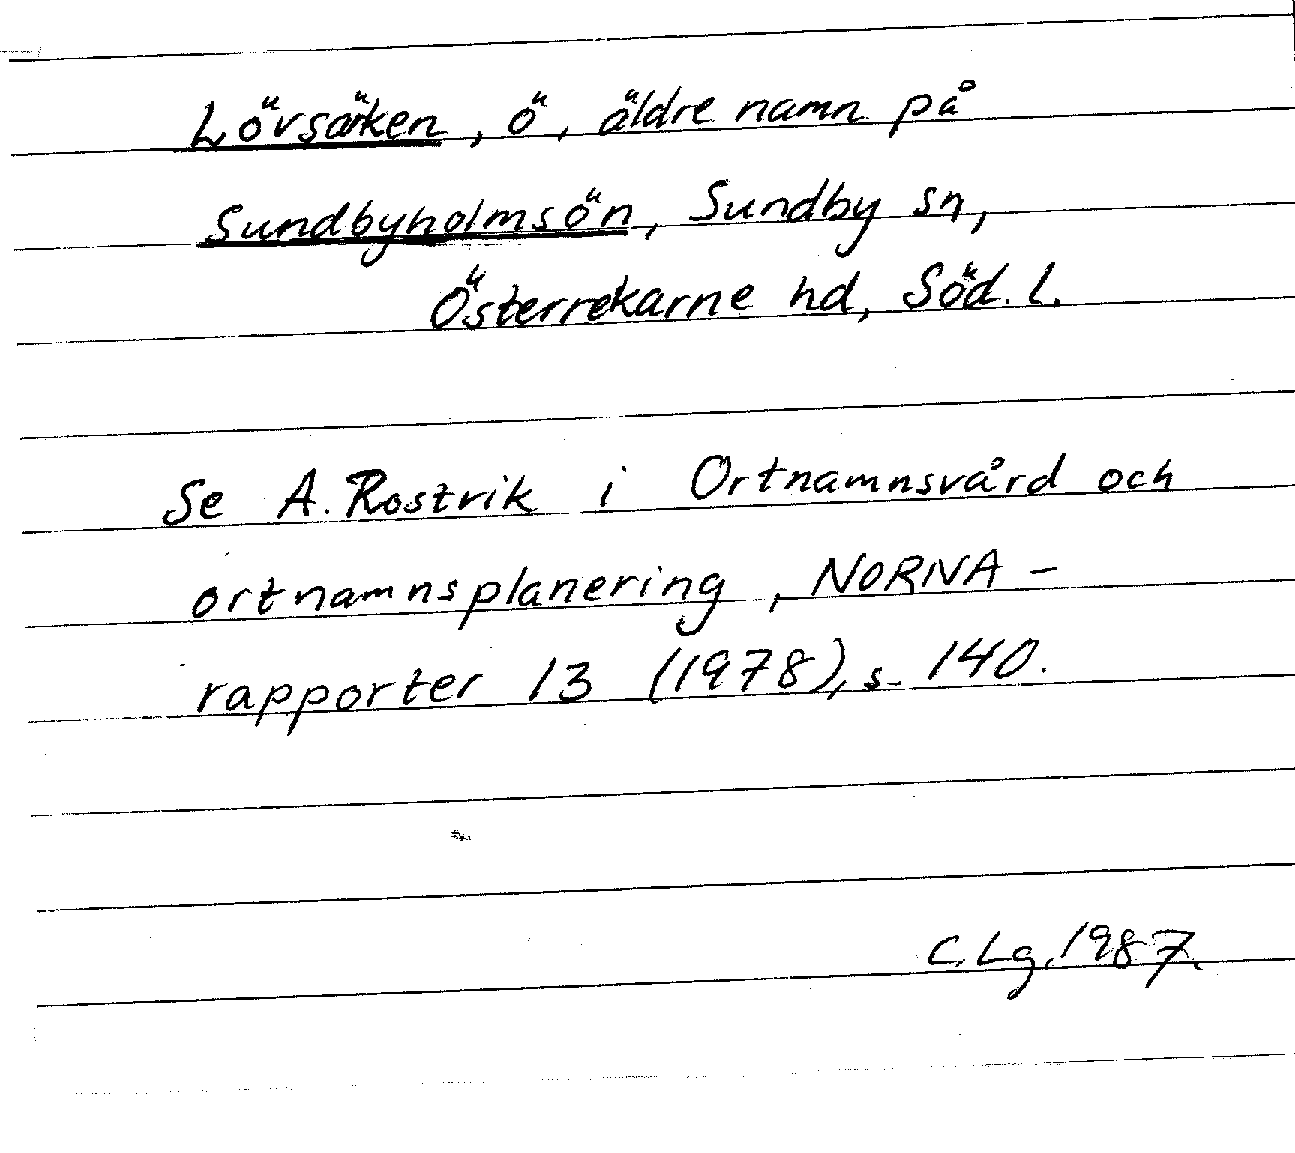 Lövsäken, ö, äldre namn på
Sundbyholmsön, Sundby sn,
Österrekarne hd, Söd. l.
Se A. Rostvik i Ortnamnsvård och
ortnamnsplanering, NORNA-
rapporter 13 (1978), s. 140.
C. Lg. 1987.